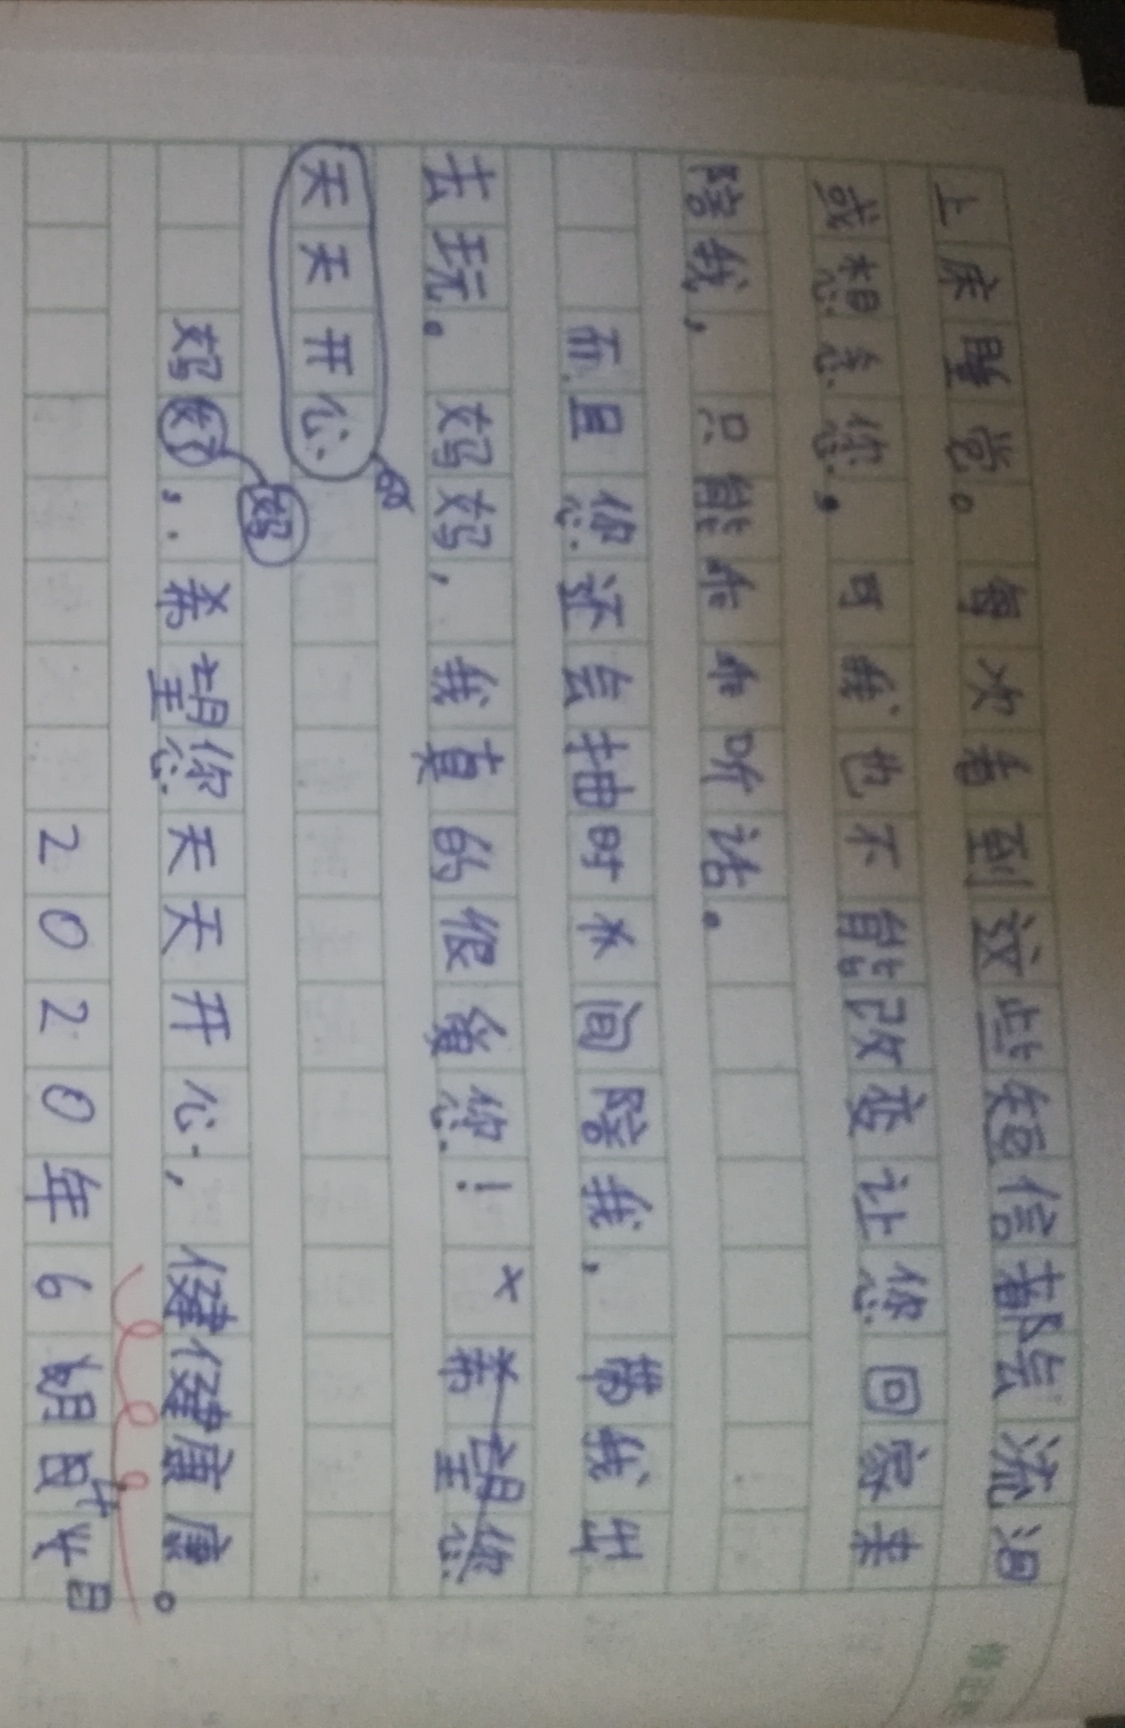 上床睡觉。每次看到这些短信都会流泪
或想念您，可我也不能改变让您回家来
陪我，只能乖乖听话。
而且您还会抽时间陪我，带我出
去玩。妈妈，我真的很爱您！希望您
天天开心
妈妈，希望您天天开心，健健康康。
2020年6月